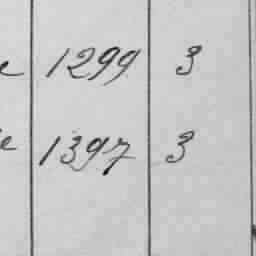 e 1299 3
e 1397 3